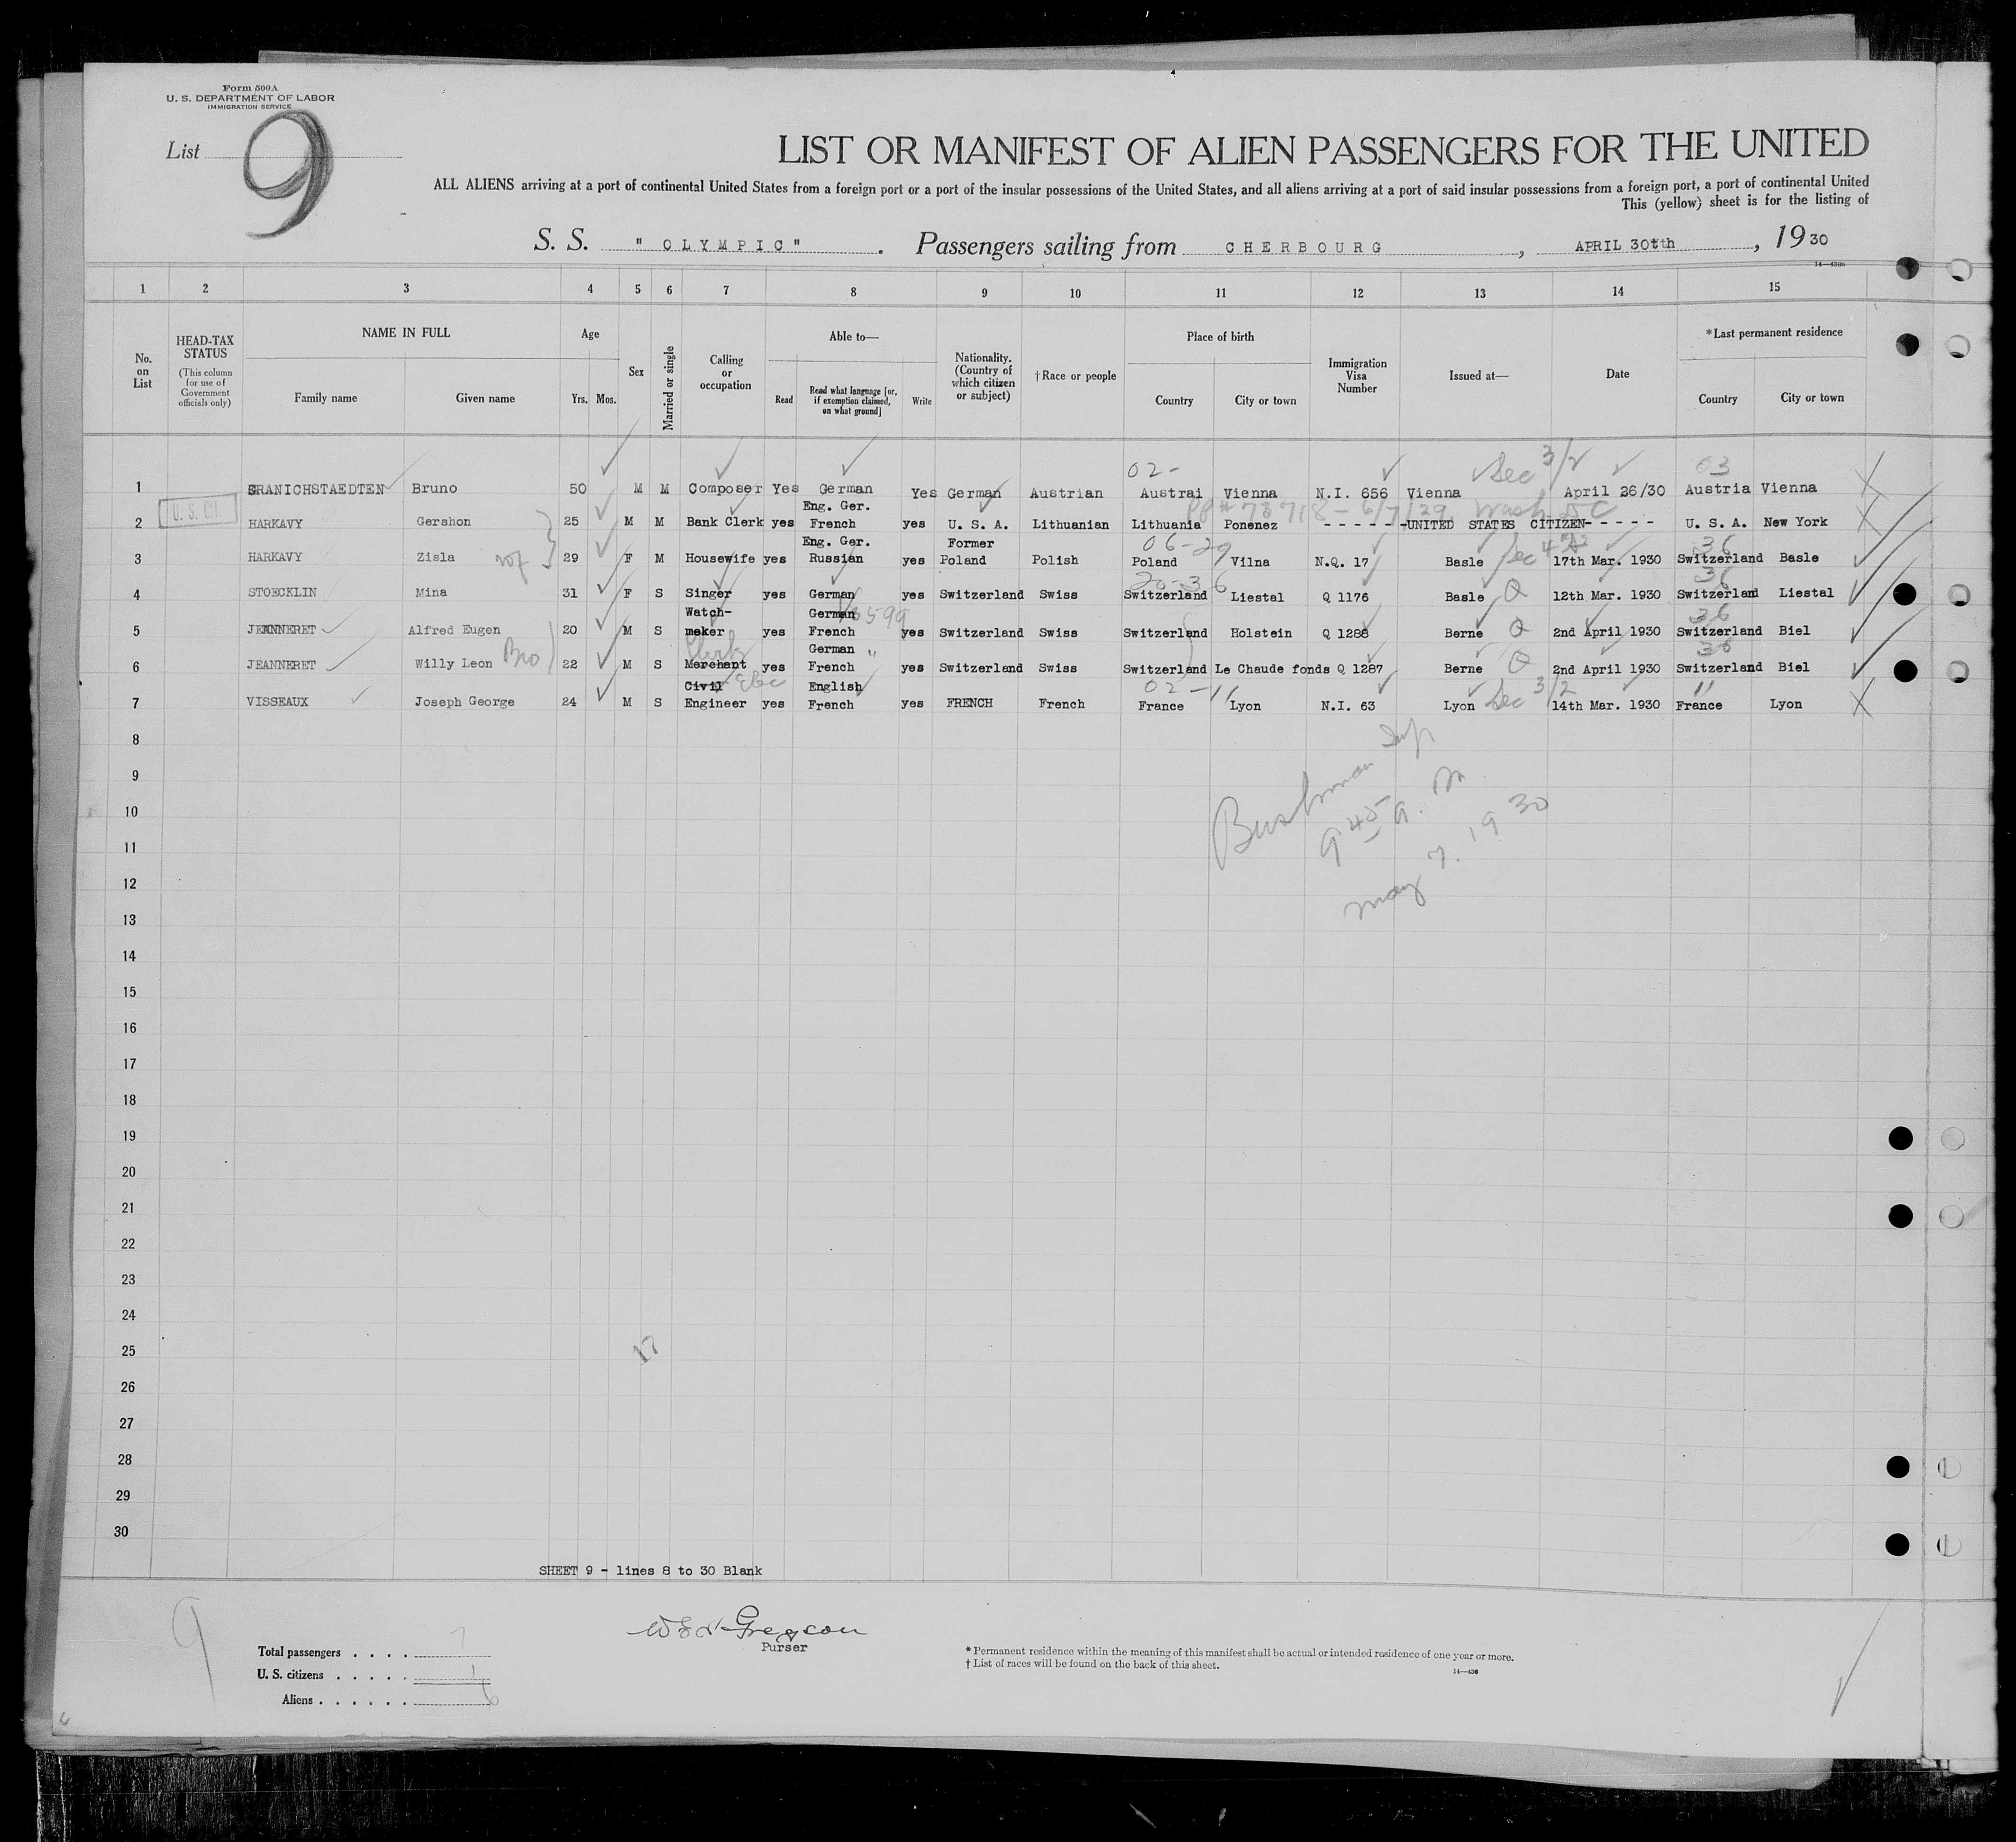 Form 500A
U. S. DEPARTMENT OF LABOR
IMMIGRATION SERVICE
List 9
LIST OR MANIFEST OF ALIEN PASSENGERS FOR THE UNITED
ALL ALIENS arriving at a port of continental United States from a foreign port or a port of the insular possessions of the United States, and all aliens arriving at a port of said insular possessions from a foreign port, a port of continental United
This (yellow) sheet is for the listing of
S. S. "OLYMPIC". Passengers sailing from CHERBOURG, APRIL 30tth, 1930
1 2 3 4 5 6 7 8 9 10 11 12 13 14 15
No. on List
HEAD-TAX STATUS (This column for use of Government officials only)
NAME IN FULL Family name Given name
Age Yrs. Mos.
Sex
Married or single
Calling or occupation
Able to— Read Read what language [or, if exemption claimed, on what ground] Write
Nationality. (Country of which citizen or subject)
†Race or people
Place of birth Country City or town
Immigration Visa Number
Issued at—
Date
*Last permanent residence Country City or town
02- Sec 3/2 03
1 GRANICHSTAEDTEN Bruno 50 M M Composer Yes German Yes German Austrian Austrai Vienna N.I. 656 Vienna April 26/30 Austria Vienna
U. S. CIT. Wash DC
2 HARKAVY Gershon 25 M M Bank Clerk yes Eng. Ger. French yes U. S. A. Lithuanian Lithuania Ponenez ------UNITED STATES CITIZEN----- U. S. A. New York
06-29 Sec 36
3 HARKAVY Zisla 29 F M Housewife yes Eng. Ger. Russian yes Former Poland Polish Poland Vilna N.Q. 17 Basle 17th Mar. 1930 Switzerland Basle
36
4 STOECKLIN Mina 31 F S Singer yes German yes Switzerland Swiss Switzerland Liestal Q 1176 Basle Q 12th Mar. 1930 Switzerland Liestal
36
5 JEANNERET Alfred Eugen 20 M S Watch-meker yes German French yes Switzerland Swiss Switzerland Holstein Q 1288 Berne Q 2nd April 1930 Switzerland Biel
Clerk 36
6 JEANNERET Willy Leon Bro 22 M S Merchant yes German French " yes Switzerland Swiss Switzerland Le Chaude fonds Q 1287 Berne Q 2nd April 1930 Switzerland Biel
Elec 02-11 Sec 3/2 11
7 VISSEAUX Joseph George 24 M S Civil Engineer yes English French yes FRENCH French France Lyon N.I. 63 Lyon 14th Mar. 1930 France Lyon
8
9
10
11
12
13
14
15
16
17
18
19
20
21
22
23
24
25
26
27
28
29
30
Bushman Insp
9 45 a. m
may 7. 1930
17
SHEET 9 - lines 8 to 30 Blank
9
Gregson
Purser
Total passengers . . . . 7
U. S. citizens . . . . . 1
Aliens . . . . . . 6
* Permanent residence within the meaning of this manifest shall be actual or intended residence of one year or more.
† List of races will be found on the back of this sheet.